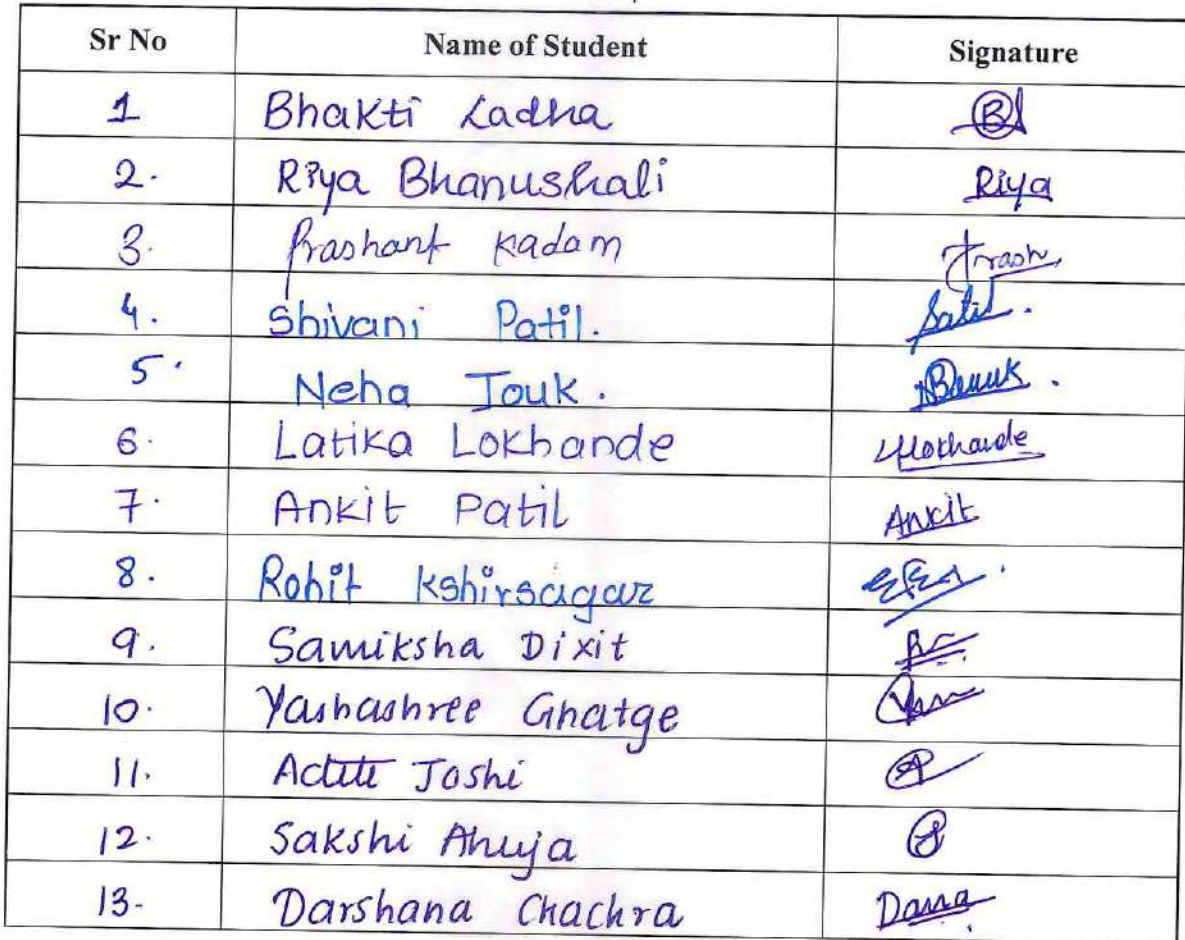 Sr No Name of Student Signature
1 Bhakti Ladha B
2. Riya Bhanushali Riya
3. Prashant Kadam Prash
4. Shivani Patil. Patil.
5. Neha Touk.
6. Latika Lokhande Lokhande
7. Ankit Patil Ankit
8. Rohit Kshirsagar
9. Samiksha Dixit
10. Yashashree Ghatge
11. Joshi A
12. Sakshi Ahuja S
13- Darshana Chachra